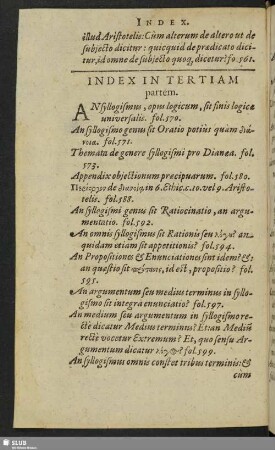 INDEX.
illud Aristotelis: Cùm alterum de altero ut de
subjecto dicitur: quicquid de prædicato dici-
tur, id omne de subjecto quoq, dicetur? fo. 561.
INDEX IN TERTIAM
partem.
AN syllogismus, opus logicum, sit finis logicæ
universalis. fol. 570.
An syllogismo genus sit Oratio potiùs quàm διά-
νοια. fol. 571.
Themata de genere syllogismi pro Dianœa. fol.
573.
Appendix objectionum præcipuarum. fol. 580.
de διανοίᾳ in 6. Ethic. c. 10. vel 9. Aristo-
telis. fol. 588.
An syllogismi genus sit Ratiocinatio, an argu-
mentatio. fol. 592.
An omnis syllogismus sit Rationis seu λόγου? an
quidam etiam sit appetitionis? fol. 594.
An Propositiones & Enunciationes sint idem? &
an quæstio sit πρότασις, id est, propositio? fol.
595.
An argumentum seu medius terminus in syllo-
gismo sit integra enunciatio? fol. 597.
An medium seu argumentum in syllogismo re-
ctè dicatur Medius terminus? Et: an Mediũ
rectè vocetur Extremum? Et, quo sensu Ar-
gumentum dicatur λόγος? fol. 599.
An syllogismus omnis constet tribus terminis: &
cùm
SLUB